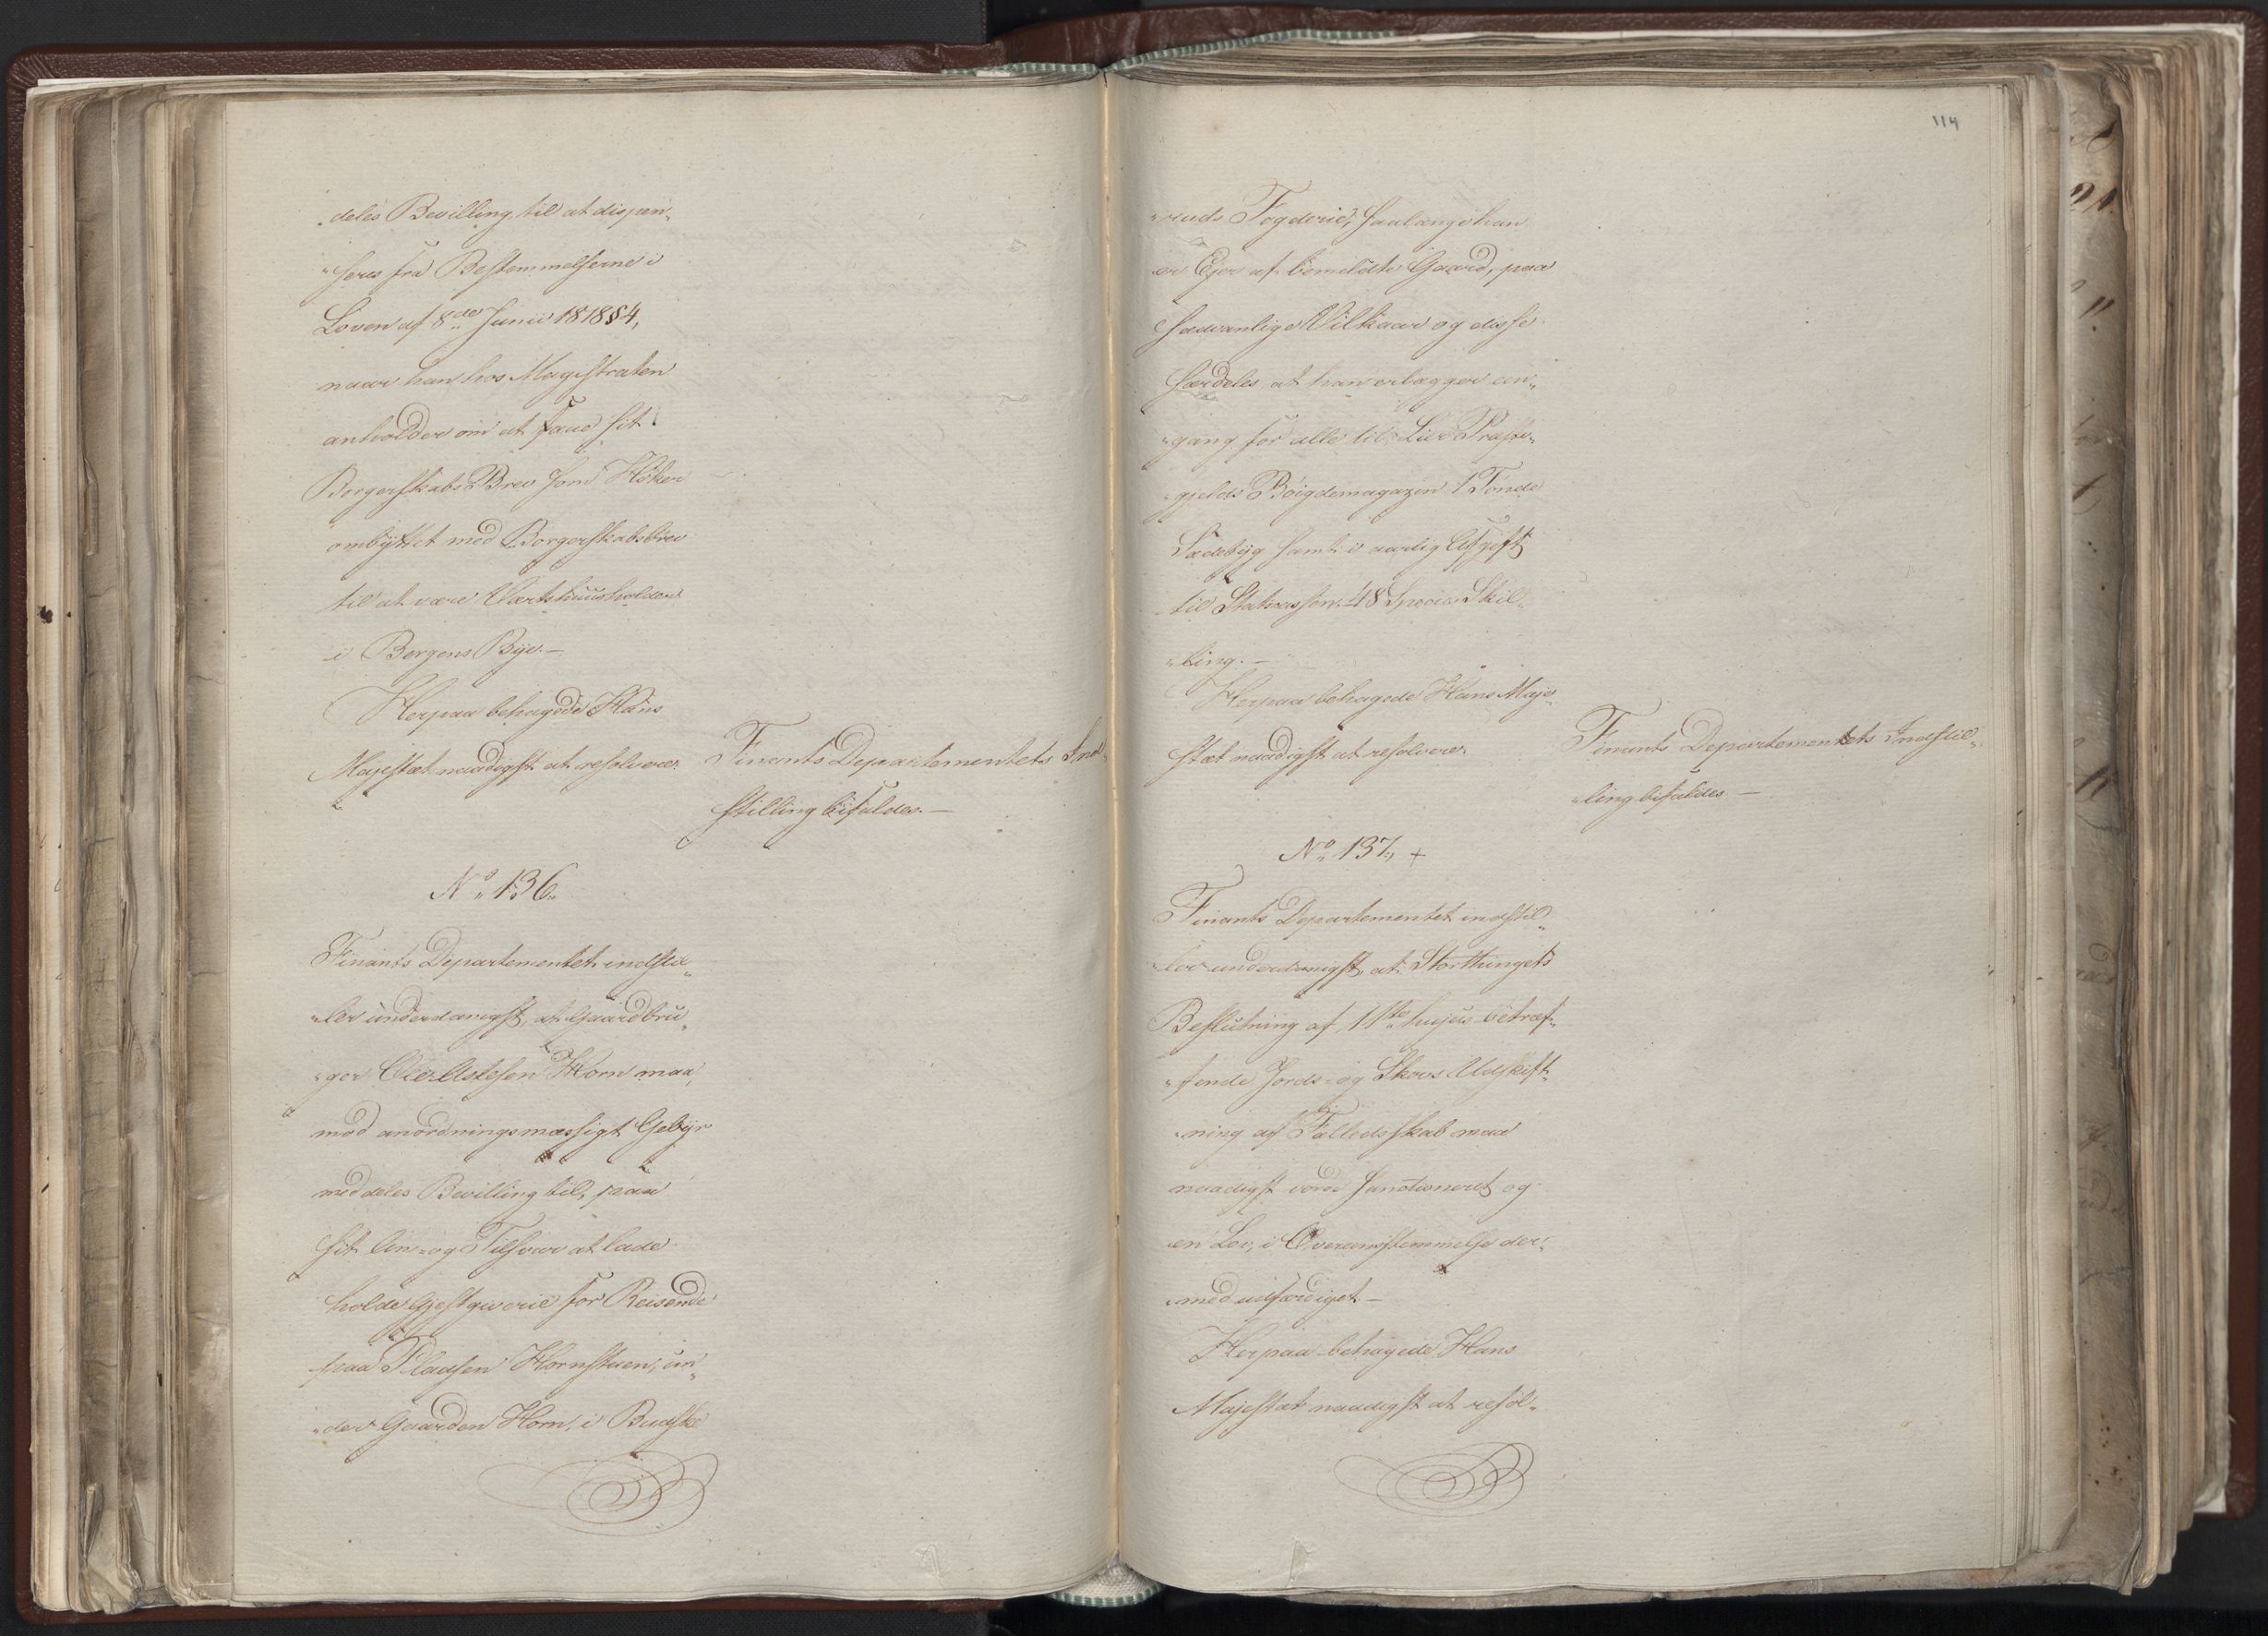 „deles Bevilling til at dispen„
„seres fra Bestemmelserne i
Loven af 8de Junii 1818 § 4,
naar han hos Magistraten
anholder om at faae sit
Borgerskabs Brev som Høker
ombÿttet med Borgerskabsbrev
til at være Værtshuusholder
i Bergens Bÿe. —
Herpaa behagede Hans
Majestæt naadigst at resolvere:
Finants Departementets Ind„
stilling bifaldes. —
No 136.
Finants Departementet indstil„
„ler underdanigst, at Gaardbru„
„ger Ole Astesen Horn maa,
mod anordningsmæssigt Gebÿr
meddeles Bevilling til, paa
sit An- og Tilsvar at lade
holde Gjestgiverie for Reisende
paa Pladsen Hornstuen, un„
„der Gaarden Horn, i Budske
114
„ruds Fogderie, saalænge han
er Ejer af bemeldte Gaard, paa
sædvanlige Vilkaar og disse
særdeles, at han erlægger een„
„gang for alle til Lier Præste„
„gjelds Bøigdemagazin 1 Tønde
Sædebÿg samt i aarlig Afgift
til Statcassen 48 Specie Skil„
„ling. —
Herpaa behagede Hans Maje„
stæt naadigst at resolvere:
Finants Departementets Indstil„
„ling bifaldes —
No 137, +
Finants Departementet indstil„
„ler underdanigst, at Storthingets
Beslutning af 11te hujus betræf„
„fende Jords- og Skovs Udskift„
„ning af Fælledsskab maa
naadigst vorde sanctioneret og
en Lov, i Overeensstemmelse der„
„med udfærdiget —
Herpaa behagede Hans
Majestæt naadigst at resol„